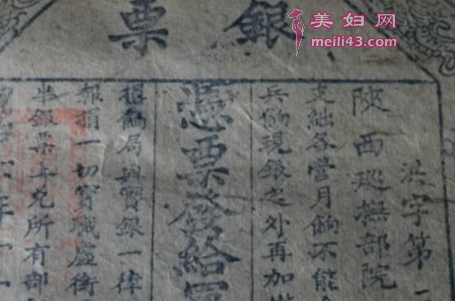 美妇网
meili43.com
銀票
洪字第一
陝西巡撫部院
支絀各營月餉不能
兵餉現銀之外再加
憑票發給
捐餉局與實銀一律
報捐一切實職虛銜
半銀票并兌所有部